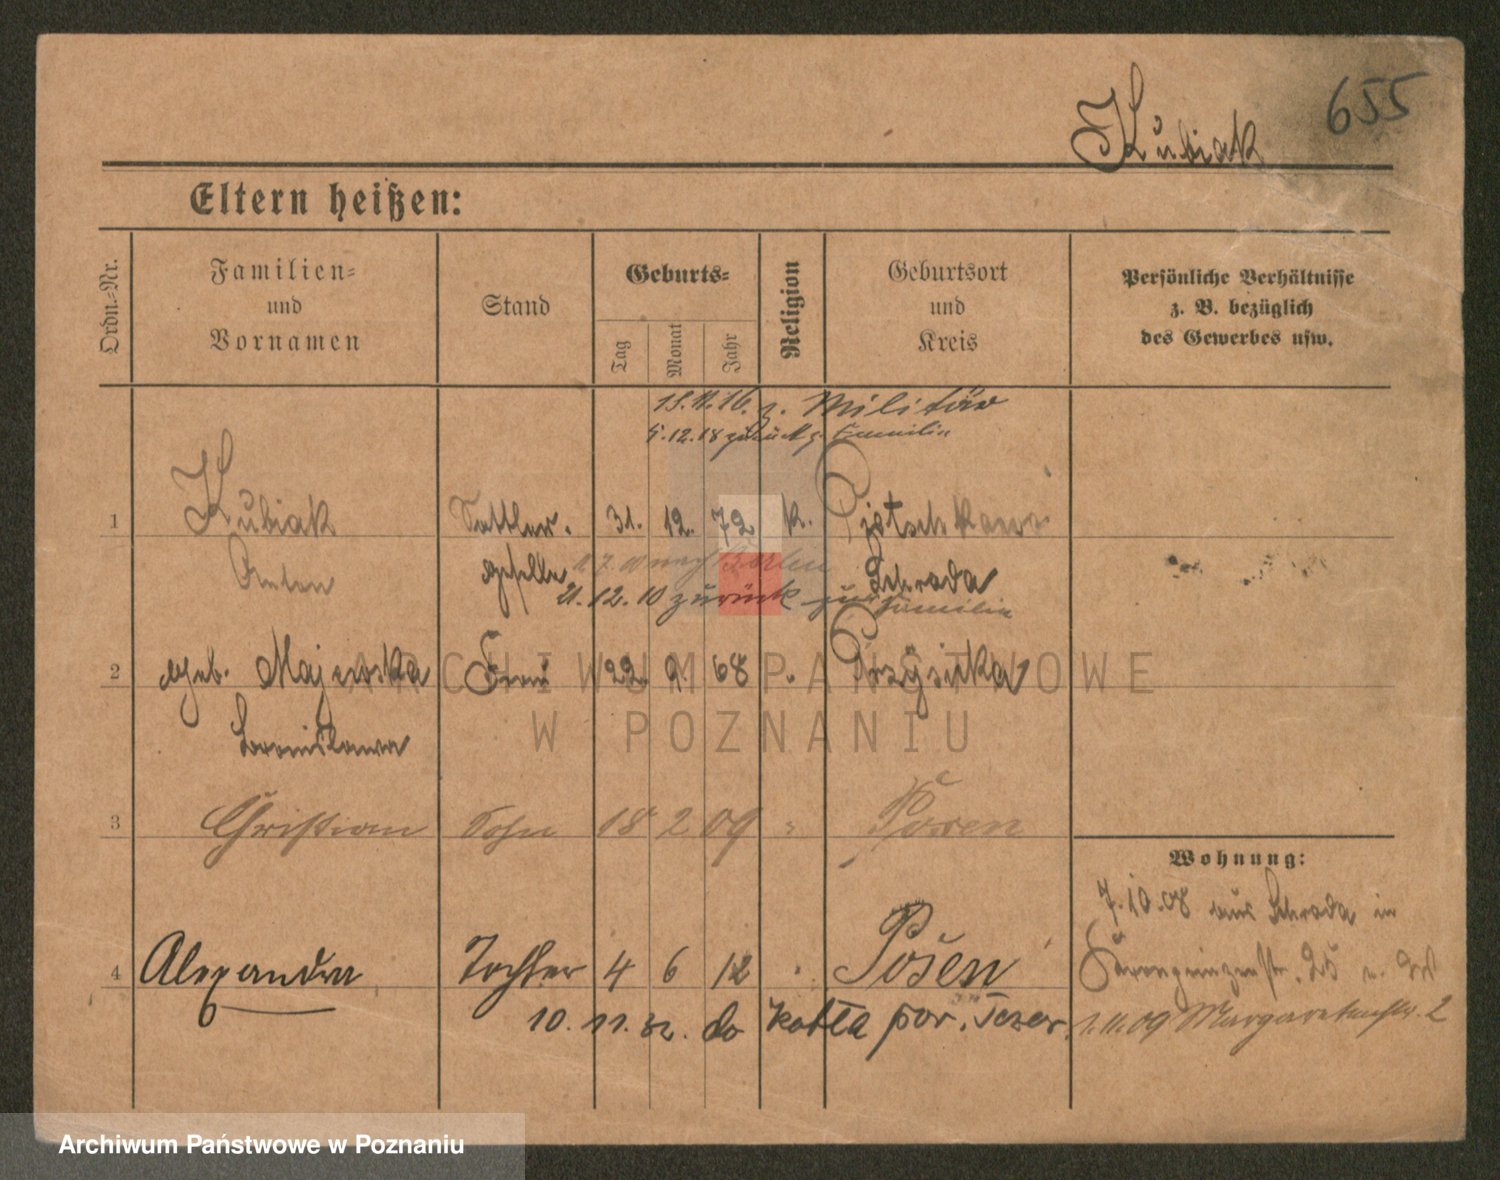 655
Kubiak
Eltern heißen:
Ordn.-Nr.
Familien-
und
Vornamen
Stand
Geburts-
Tag
Monat
Jahr
Religion
Geburtsort
und
Kreis
Persönliche Verhältnisse
z. B. bezüglich
des Gewerbes usw.
15.11.16. z. Militär
5.12.18 zurück z. Familie
1 Kubiak Sattler- 31. 12. 72 k.
Anton geselle Schroda
nach Berlin
21.12.10 zurück zur Familie
2 geb. Majewska Frau 22. 9. 68 "
Bronislawa
3 Christian Sohn 18 2 09 " Posen
4 Alexandra Tochter 4 6 12 " Posen
10.11.32. do Kotła pow.
Wohnung:
7.10.08 aus Schroda in
Kronprinzenstr. 25
1.11.09 Margaretenstr. 2
ARCHIWUM PAŃSTWOWE
W POZNANIU
Archiwum Państwowe w Poznaniu